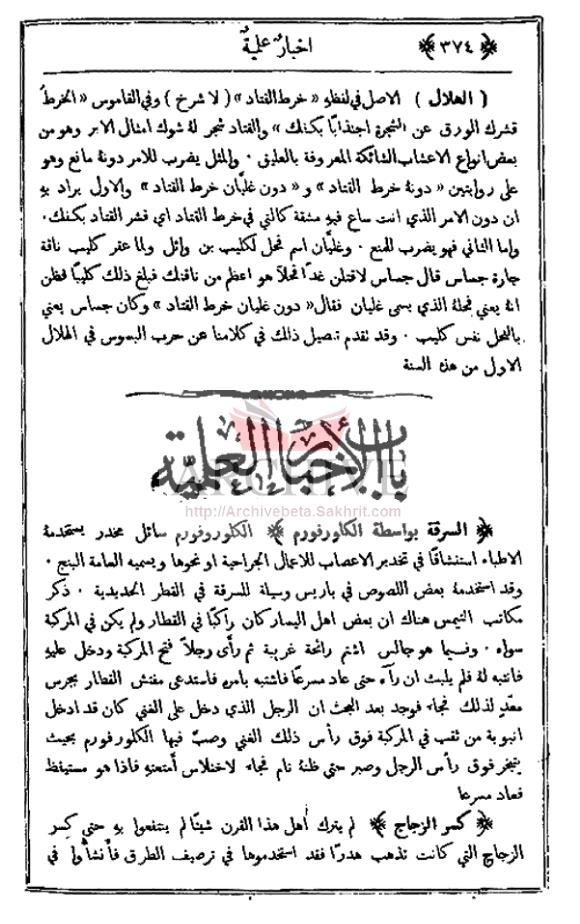 ﴿ ٣٧٤ ﴾
اخبار علمية
( الهلال ) الاصل في لفظهِ « خرط القتاد » ( لا شرخ ) وفي القاموس « الخرط
قشرك الورق عن الشجرة اجتذابًا بكفك » والقتاد شجر لهُ شوك امثال الابر وهو من
بعض انواع الاعشاب الشائكة المعروفة بالعليق . والمثل يضرب للامر دونهُ مانع وهو
على روايتين « دونهُ خرط القتاد » و « دون غليَّان خرط القتاد » والاول يراد بهِ
ان دون الامر الذي انت ساعٍ فيهِ مشقة كالتي في خرط القتاد اي قشر القتاد بكفك .
واما الثاني فهو يضرب للمنع . وغليَّان اسم فحل لكليب بن وائل ولما عقر كليب ناقة
جارة جساس قال جساس لاقتلن غدًا فحلاً هو اعظم من ناقتك فبلغ ذلك كليبًا فظن
انهُ يعني فحلهُ الذي يسمى غليان فقال « دون غليان خرط القتاد » وكان جساس يعني
بالفحل نفس كليب . وقد تقدم تفصيل ذلك في كلامنا عن حرب البسوس في الهلال
الاول من هذه السنة
باب الأخبار العلمية
ARCHIVE
http://Archivebeta.Sakhrit.com
﴿ السرقة بواسطة الكلورفورم ﴾ الكلوروفورم سائل مخدر يستخدمهُ
الاطباء استنشاقًا في تخدير الاعصاب للاعمال الجراحية او نحوها ويسميه العامة البنج .
وقد استخدمهُ بعض اللصوص في باريس وسيلة للسرقة في القطر الحديدية . ذكر
مكاتب التيمس هناك ان بعض اهل اليسار كان راكبًا في القطار ولم يكن في المركبة
سواه . وفيما هو جالس اشتم رائحة غريبة ثم رأى رجلاً فتح المركبة ودخل عليهِ
فانتبه لهُ فلم يلبث ان رآه حتى عاد مسرعًا فاشتبه بامرهِ فاستدعى مفتش القطار بجرس
معدٍّ لذلك فجاء فوجد بعد البحث ان الرجل الذي دخل على الغني كان قد ادخل
انبوبة من ثقب في المركبة فوق رأس ذلك الغني وصبَّ فيها الكلورفورم بحيث
يتبخر فوق رأس الرجل وصبر حتى ظنهُ نام فجاء لاختلاس أمتعتهِ فاذا هو مستيقظ
فعاد مسرعا
﴿ كسر الزجاج ﴾ لم يترك أهل هذا القرن شيئًا لم ينتفعوا بهِ حتى كسر
الزجاج التي كانت تذهب هدرًا فقد استخدموها في ترصيف الطرق فأنشأوا في